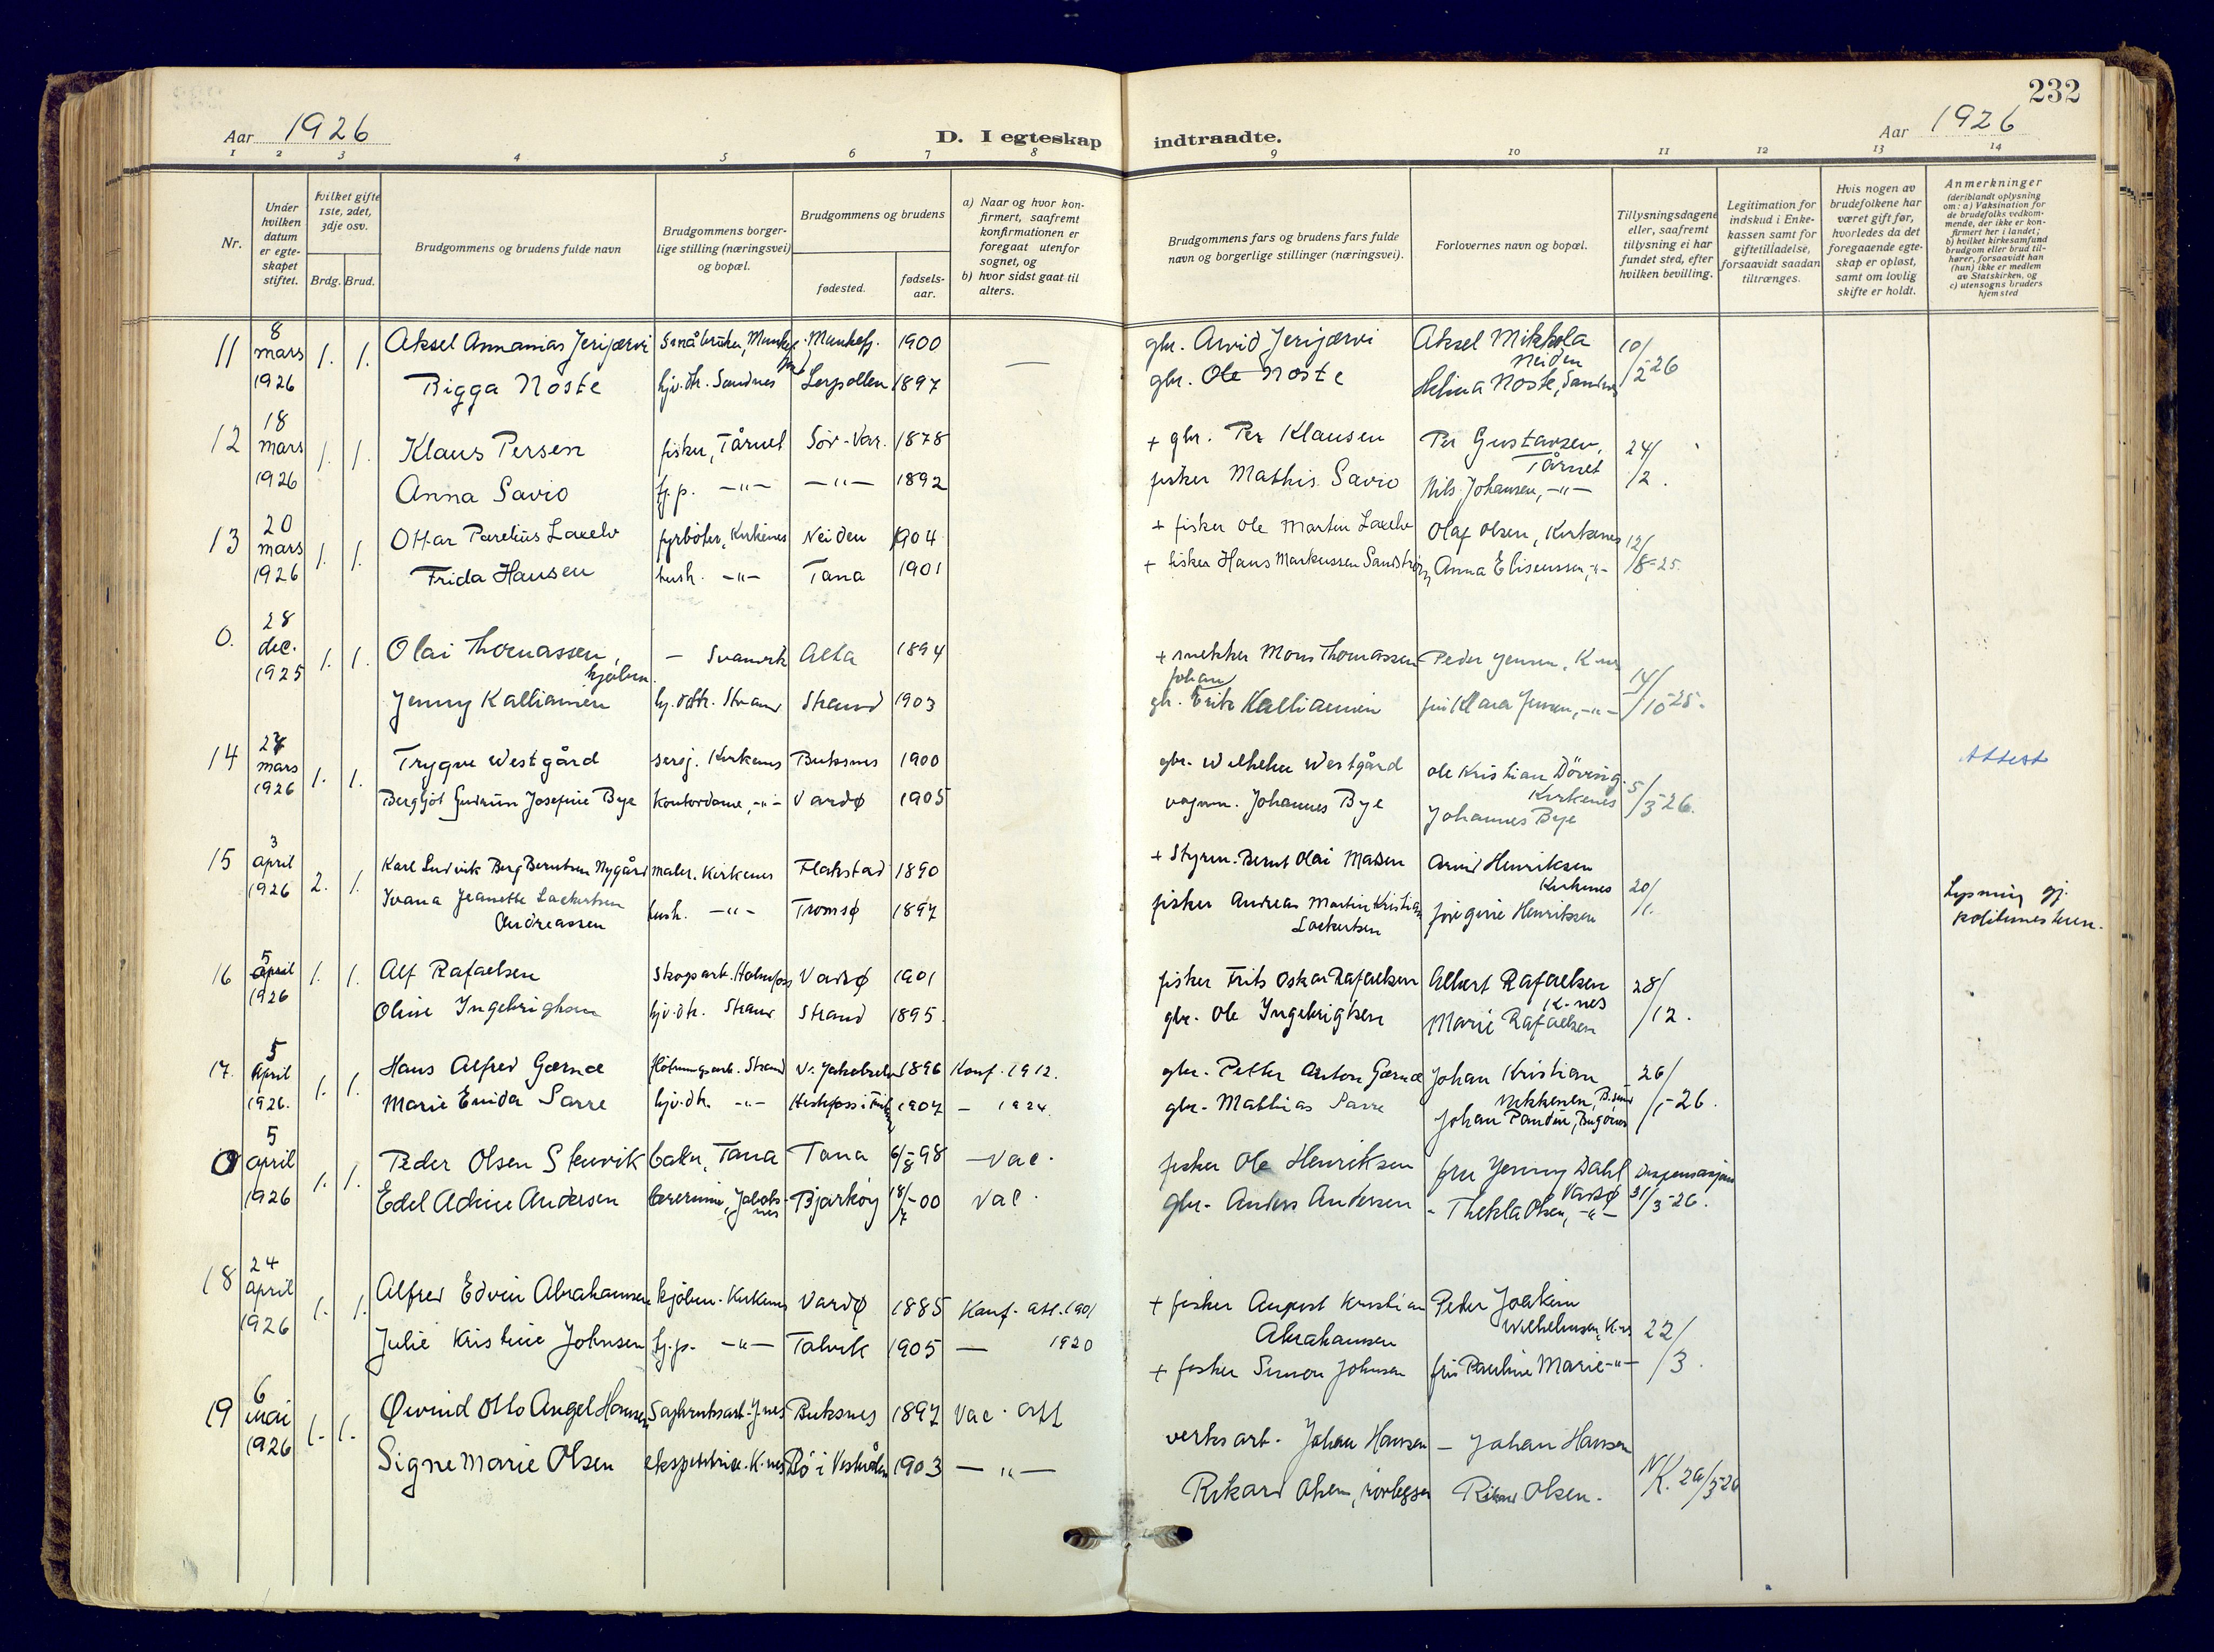 232
Aar 1926
D. I egteskap indtraadte.
Aar 1926
1 2 3 4 5 6 7 8 9 10 11 12 13 14
Nr.
Under hvilken datum er egteskapet stiftet.
Hvilket gifte 1ste, 2det, 3dje osv.
Brdg. Brud.
Brudgommens og brudens fulde navn
Brudgommens borgerlige stilling (næringsvei) og bopæl.
Brudgommens og brudens
fødested.
fødselsaar.
a) Naar og hvor konfirmert, saafremt konfirmationen er foregaat utenfor sognet, og
b) hvor sidst gaat til alters.
Brudgommens fars og brudens fars fulde navn og borgerlige stillinger (næringsvei).
Forlovernes navn og bopæl.
Tillysningsdagene eller, saafremt tillysning ei har fundet sted, efter hvilken bevilling.
Legitimation for indskud i Enkekassen samt for giftetilladelse, forsaavidt saadan tiltrænges.
Hvis nogen av brudefolkene har været gift før, hvorledes da det foregaaende egteskap er opløst, samt om lovlig skifte er holdt.
Anmerkninger (deriblandt oplysning om: a) Vaksination for de brudefolks vedkommende, der ikke er konfirmert her i landet; b) hvilket kirkesamfund brudgom eller brud tilhører, forsaavidt han (hun) ikke er medlem av Statskirken, og c) utensogns bruders hjemsted
11 8 mars 1926 1. 1. Aksel Annanias Jerijærvi Småbruker, Munkefj. Munkefj. 1900 — gbr. Arvid Jerijærvi Aksel Mikkola Neiden 10/2-26
Bigga Noste hjv. dtr. Sandnes Lerpollen 1897 gbr. Ole Noste Helina Noste, Sandnes
12 18 mars 1926 1. 1. Klaus Persen fisker, Tårnet Sør-Var. 1878 + gbr. Per Klausen Per Gustavsen, Tårnet 24/2.
Anna Savio hj. p. —"— —"— 1892 fisker Mathis Savio Nils Johansen, —"—
13 20 mars 1926 1. 1. Ottar Parelius Laxelv fyrbøter, Kirkenes Neiden 1904 + fisker Ole Martin Laxelv Olaf Olsen, Kirkenes 12/8-25
Frida Hansen hush. —"— Tana 1901 + fisker Hans Markussen Sandstrøm Anna Eliseussen, —"—
0. 28 dec. 1925 1. 1. Olai Thomassen, kjøbm. — Svanvik Alta 1894 + snekker Mons Thomassen Peder Jensen, K-nes 14/10-25.
Jenny Kalliainen hj. dtr. Strand Strand 1903 gb. Johan Erik Kalliainen fru Klara Jensen, —"—
14 27 mars 1926 1. 1. Trygve Westgård sersj. Kirkenes Buksnes 1900 gbr. Wilhelm Westgård Ole Kristian Döving Kirkenes 5/3-26. Attest
Bergljot Gudrun Josefine Bye kontordame, —"— Vardø 1905 vognm. Johannes Bye Johannes Bye
15 3 april 1926 2. 1. Karl Ludvik Berg Berntsen Nygård maler. Kirkenes Flakstad 1890 + Styrm. Bernt Olai Madsen Arvid Henriksen Kirkenes 20/1. Lysning gj. politimesteren.
Ivana Jeanette Lockertsen Andreassen hush. —"— Tromsø 1897 fisker Andreas Martin Kristian Lockertsen Henriksen
16 5 april 1926 1. 1. Alf Rafaelsen Skogsarb. Holmfoss Vadsø 1901 fisker Frits Oskar Rafaelsen Albert Rafaelsen K-nes 28/12.
Oline Ingebrigtsen hjv. dtr. Strand Strand 1895. gbr. Ole Ingebrigtsen Marie Rafaelsen
17. 5 april 1926. 1. 1. Hans Alfred Gærnæ Fløtningsarb. Strand V. Jakobselv 1896 Konf. 1912. gbr. Petter Anton Gærnæ Johan Kristian 26/1-26.
Marie Enida Sarre hjv. dtr. —"— 1907 — 1924 gbr. Mathias Sarre Johan Pandui, Bugøynes
0 5 april 1926 1. 1. Peder Olsen Stenvik baker, Tana Tana 6/8-98 — Vac. fisker Ole Henriksen fru Jenny Dahl Vadsø Dispensasjon 31/3-26.
Edel Adine Andersen Jakobsnes Bjarkøy 18/7-00 Vac. gbr. Anders Andersen - Thekla Olsen, —"—
18 24 april 1926 1. 1. Alfred Edvin Abrahamsen kjøbm. Kirkenes Vardø 1885 Konf. att. 1901 + fisker August Kristian Abrahamsen Peder Joakim Wilhelmsen, K-nes 22/3.
Julie Kristine Johnsen hj. p. —"— Talvik 1905 — 1920 + fisker Simon Johnsen fru Pauline Marie —"—
19 6 mai 1926 1. 1. Øivind Otto Angel Hansen Sagbruksarb. J-nes Buksnes 1897 Vac. att verksarb. Johan Hansen — Johan Hansen N/K. 29/3-26
Signe Marie Olsen ekspeditrise. K-nes Bø i Vesterålen 1903 — " — Rikard Olsen, rørlegger Rikard Olsen.